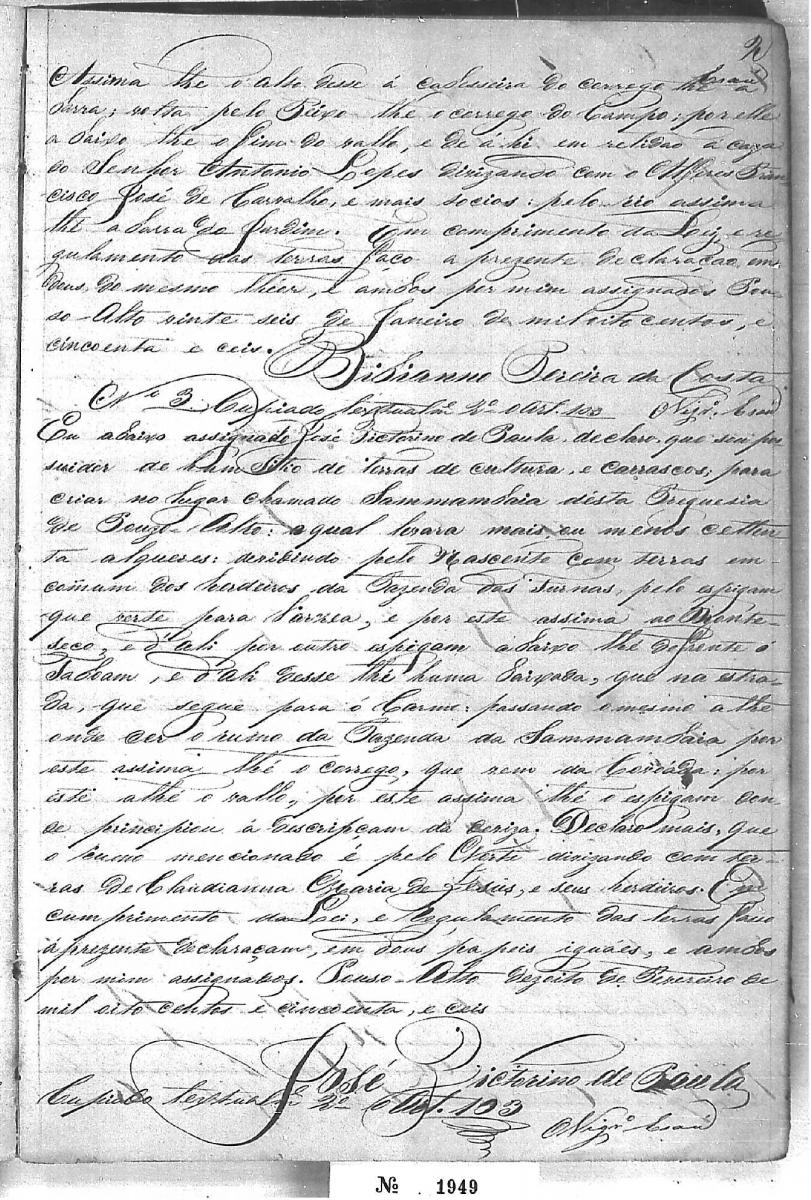 2
Assima thé o alto desse á cabesseira do corrego thé a
Serra; volta pelo Rixo thé o corrego do Campo; por elle
a baixo thé o fim do vallo, e de á hi em retidão á caza
do Senhor Antonio Lopes divizando com o Alferes Fran
cisco José de Carvalho, e mais socios: pelo rio assima
thé a Sarra do Jardim. Em comprimento da Leiz, e re
gulamento das terras faço a prezente declaração, em
deus, do mesmo thier, e ambos por mim assignados Pou
so-Alto vinte seis de Janeiro de mil oito centos, e
cincoenta e ceis. Bibianno Pereira da Costa
Nº 3. Cupiado textualmᵉ 2º Art. 103
Eu abaixo assignado José Victorino de Paula, declaro, que sou pos
suidor de hum Sitio de terras de cultura, e carrascos; para
criar no lugar chamado Sammambaia désta Freguesia
de Pouzo-Alto: a qual levara mais ou menos cetten
ta alqueres: devibindo pelo Nascente com terras em
comum dos herdeiros da Fazenda das Furnas, pelo espigam
que verte para Varzea, e por este assima ao Monte-
seco, e d'ali por outro espigam abaixo thé defrente ó
Taboam, e d'ali desse thé huma baixada, que na estra-
da, que segue para ó Carmo: passando o mesmo a thé
onde cer o rumo da Fazenda da Sammambaia por
este assima thé o corrego, que vem da Cercada: por
isté athé o vallo, por este assima thé o espigam don
de principiou á descripçam da deviza. Declaro mais, que
o rumo mencionado é pelo Norte divizando com ter-
ras de Claudianna Maria de Jesus, e seus herdeiros. Em
cumprimento da Lei, e Regulamento das terras faço
á prezente declaraçam, em dous papeis iguaes, e ambos
por mim assignados. Pouso-Alto dezoito de Fevereiro de
mil oito centos e cincoenta, e ceis
José Victorino de Paula
Cupiado textualmᵉ 2º Art. 103
Nº 1949